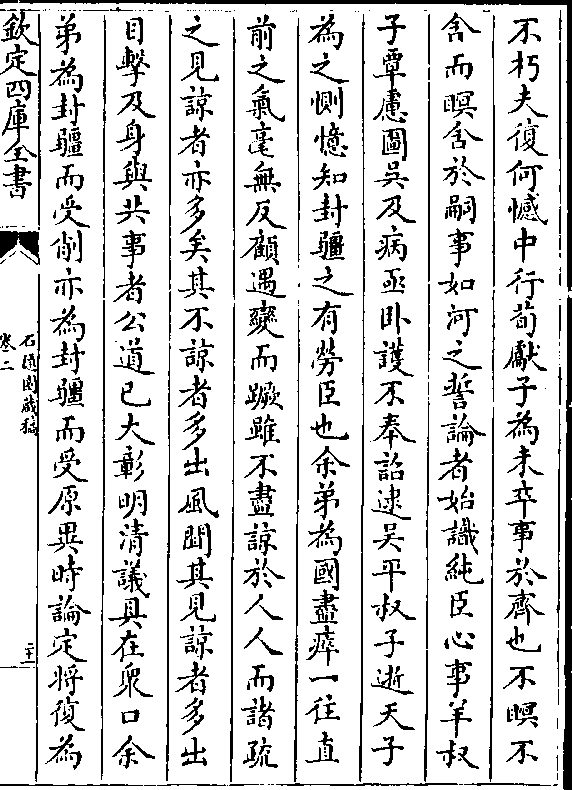 不朽夫復何憾中行荀獻子為未卒事於齊也不瞑不
含而瞑含於嗣事如河之誓論者始識純臣心事羊叔
子覃慮圖吳及病亟卧護不奉詔逮吳平叔子逝天子
為之惻憶知封疆之有勞臣也余弟為國盡瘁一往直
前之氣毫無反顧遇變而蹶雖不盡諒於人人而諸疏
之見諒者亦多矣其不諒者多出風聞其見諒者多出
目擊及身與共事者公道已大彰明清議具在衆口余
弟為封疆而受創亦為封疆而受原異時論定將復為
欽定四庫全書
石隱園藏稿
卷二
二十一